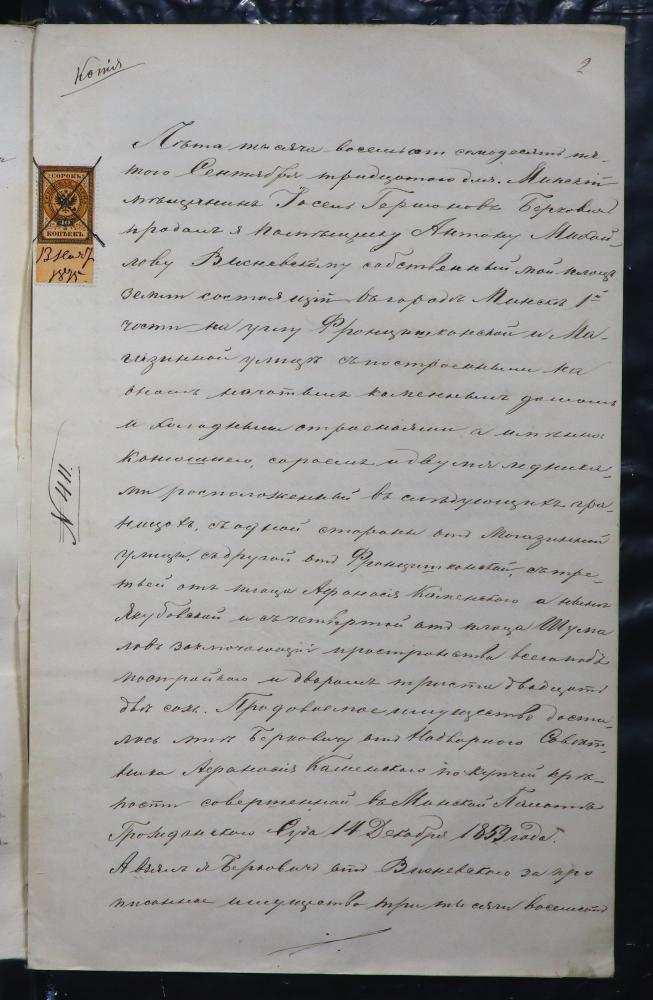 Копія
2
СОРОКЪ
40
КОПѢЕКЪ
1875
Лѣта тысяча восемьсотъ семьдесятъ пя-
того Сентября тридцатого дня. Минскій
мѣщанинъ Іосель Гершоновъ Берковичъ
продалъ я помѣщику Антону Михай-
лову Висневскому собственный мой плацъ
земли состоящій въ городѣ Минскѣ 1й
части на углу Францишканской и Ма-
газинной улицъ съ построеннымъ на
ономъ начатымъ каменнымъ домомъ
и холодными строеніями а именно
конюшнею, сараемъ и двумя ледника-
ми расположенный въ слѣдующихъ гра-
ницахъ, съ одной стороны отъ Магазинной
улицы, съ другой отъ Францишканской, съ тре-
тьей отъ плаца Афанасія Каменского а нынѣ
Якубовской и съ четвертой отъ плаца Шума
ловъ заключающій пространства всего подъ
постройкою и дворомъ триста двадцать
двѣ саж. Продаваемое имущество доста-
лось мнѣ Берковичу отъ Надворного Совѣт-
ника Афанасія Каменского по купчей крѣ-
пости совершенной въ Минской Палатѣ
Гражданского Суда 14 Декабря 1859 года.
А взялъ я Берковичъ отъ Висневского за про
писанное имущество три тысячи восемьсотъ
N 411.